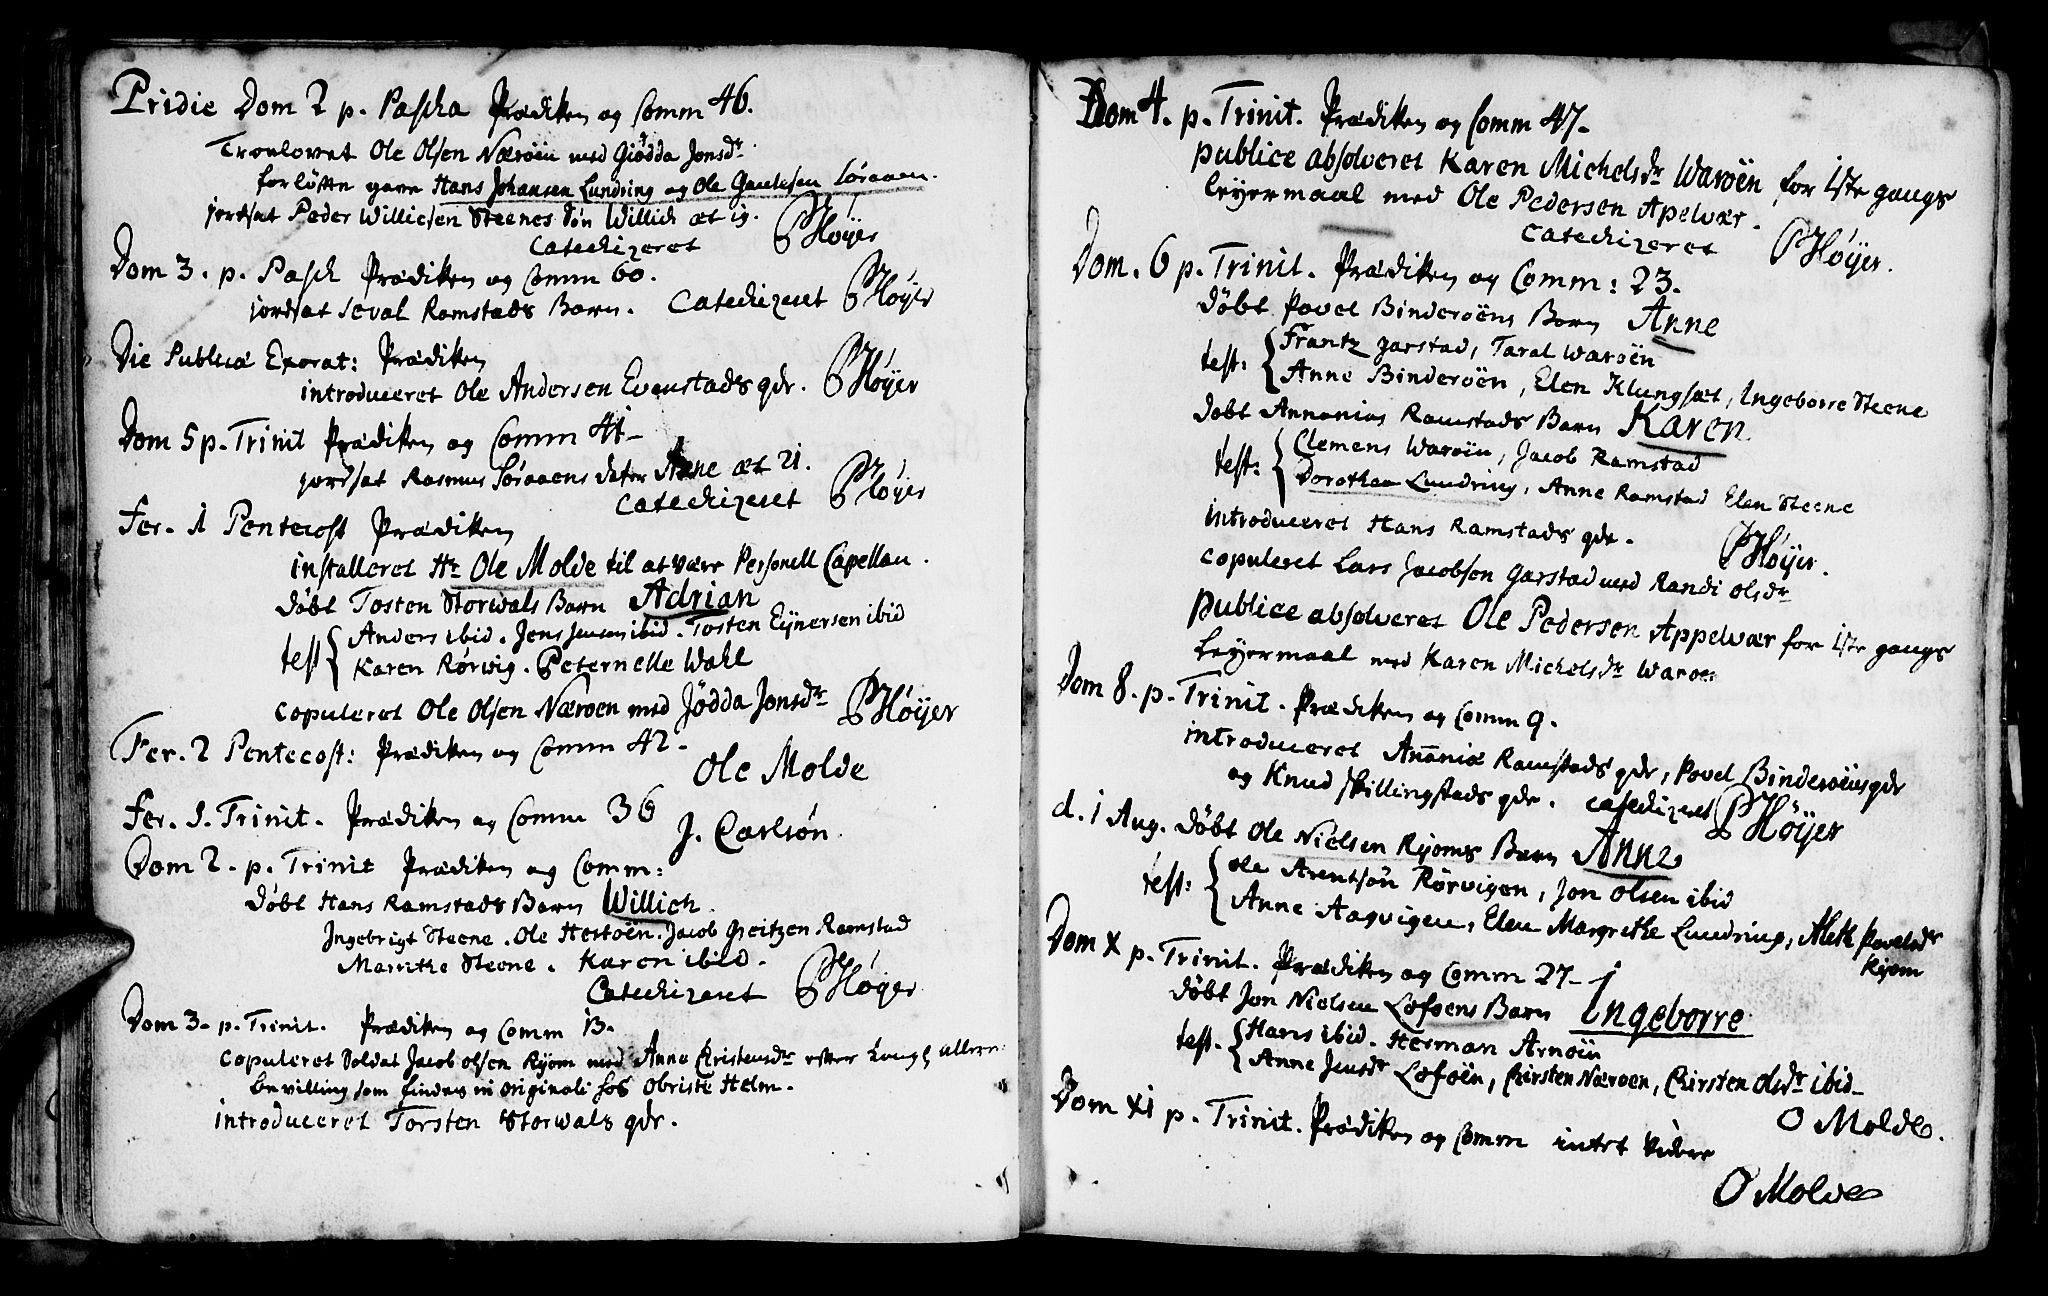 Pridie Dom 2 p. Pascha Prædiken og Comm 46.
Troelovet Ole Olsen Nærøen med Giödda Jonsdr
forløfte gave Hans Johansen Lundring og Ole Gautesen Söraaen.
jordsat Peder Willicsen Steenes Søn Willich æt 19.
Catechizeret PHöÿer
Dom 3. p. Pasch Prædiken og Comm 60.
jordsat Seval Ramstads Barn. Catechizeret PHöÿer
Die Publica Exorat: Prædiken
introduceret Ole Andersen Evenstads qdr. PHöÿer
Dom 5 p. Trinit Prædiken og Comm 41-
jordsat Rasmus Söraaens dater Anne æt 21.
Catechizeret PHöÿer
Fer. 1 Pentecost Prædiken
installeret Hr Ole Molde til at være Personell Capellan.
döbt Tosten Storwals Barn Adrian
test { Anders ibid. Jens Jensen ibid. Tosten Eÿnersen ibid
Karen Rörvig. Peternelle Wahl
copuleret Ole Olsen Næroen med Jödda Jonsdr PHöÿer
Fer. 2 Pentecost: Prædiken og Comm 42-
Ole Molde
Fer. S. Trinit. Prædiken og Comm 36
J. Carlsön.
Dom 2. p. Trinit Prædiken og Comm:
döbt Hans Ramstads Barn Willich
Ingebrigt Steene. Ole Hestöen. Jacob Greitzen Ramstad
Marithe Steene. Karen ibid.
Catechizeret PHöÿer
Dom 3- p. Trinit. Prædiken og Comm 13.
copuleret Soldat Jacob olsen Rÿom med Anne Christensdr efter Kongl allern:
bevilling som findes in originali hos Obriste Helm.
introduceret Torsten Storwals qdr.
Dom 4. p. Trinit. Prædiken og Comm 47-
publice absolveret Karen Michelsdr Waröen for 1ste gangs
leÿermaal med Ole Pedersen Apelvær.
Catechizeret PHöÿer.
Dom. 6 p. Trinit. Prædiken og Comm: 23.
döbt Povel Binderöens Barn Anne
test: { Frantz garstad, Taral Waröen
Anne Binderöen, Elen Klungsæt, Ingeborre Steene
döbt Annanias Ramstads Barn Karen
test: { Clemens Waröen, Jacob Ramstad
Dorothea Lundring, Anne Ramstad Elen Steene
introduceret Hans Ramstads qdr. PHöÿer.
copuleret Lars Jacobsen Garstad med Randi olsdr
publice absolveret Ole Pedersen Appelvær for 1ste gangs
Leÿermaal med Karen Michelsdr Waroe
Dom 8. p. Trinit. Prædiken og Comm 9.
introduceret Ananiæ Ramstads qdr, Povel Binderöens qdr
og Knud Skillingstads qdr. catechizeret PHöÿer
d. 1 Aug. döbt Ole Nielsen Rÿoms Barn Anne
test: { ole Arentsön Rörvigen, Jon olsen ibid
Anne Aagvigen, Elen Margrethe Lundring, Aleth Povelsdr
Rÿom
Dom X p. Trinit. Prædiken og Comm 27-
döbt Jon Nielsen Lofoens Barn Ingeborre
test. { Hans ibid. Herman Arnöen
Anne Jensdr Lofoen, Chirsten Næroen, Chirsten olsdr ibid-
O Molde.
Dom XI p. Trinit. Prædiken og Comm intet videre
O Molde